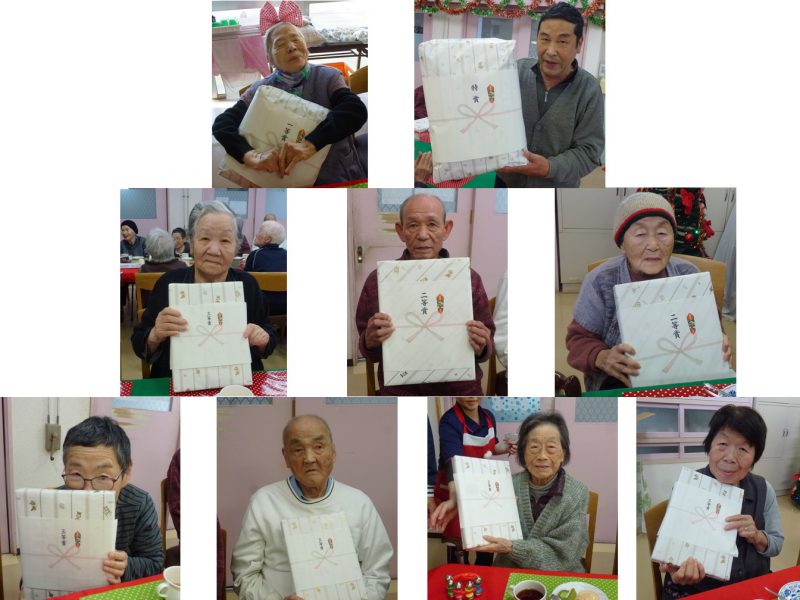 一等賞
特賞
三等賞
二等賞
二等賞
三等賞
三等賞
三等賞
三等賞